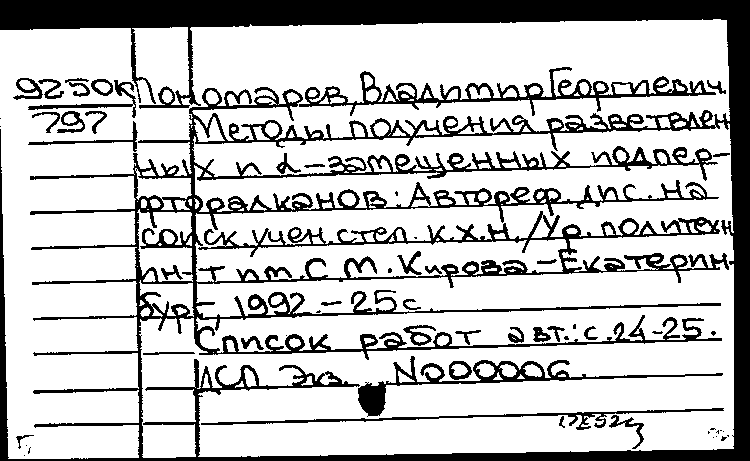 9250к Пономарев, Владимир Георгиевич
797 Методы получения разветвлен-
ных и α-замещенных подпер-
фторалканов: Автореф. дис. на
соиск. учен. степ. к.х.н. / Ур. политехн
ин-т им. С.М. Кирова. - Екатерин-
бург, 1992. - 25 с.
Список работ авт.: с. 24-25.
ДСП. Экз. N000006.